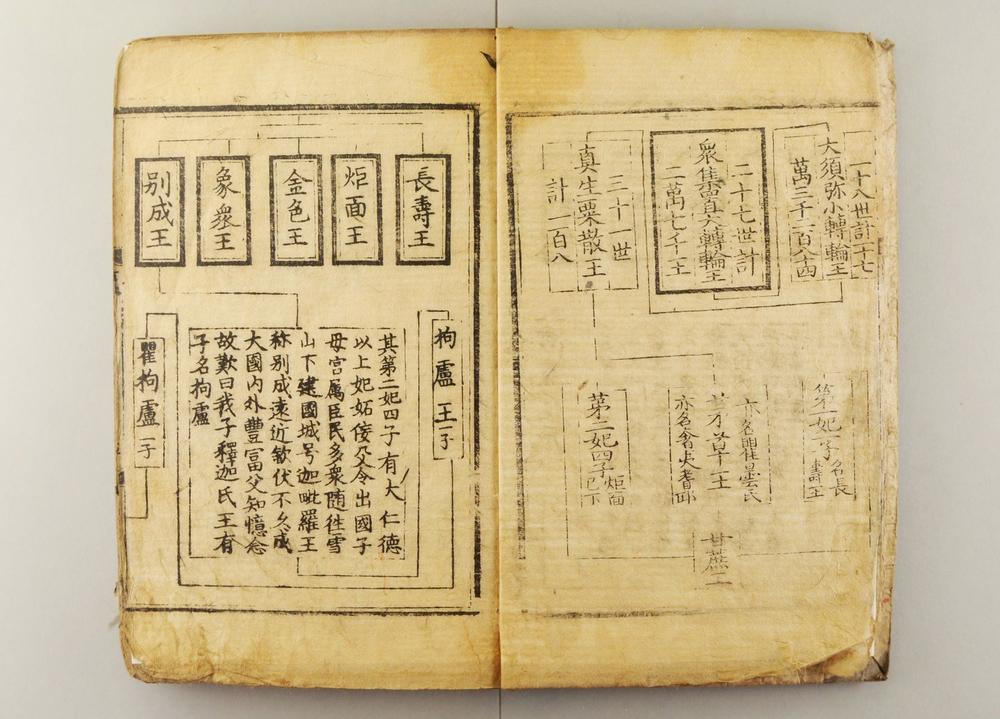 一十八世計一十七
大須弥小轉輪王
萬三千二百八十四
二十七世計
衆集
轉輪王
二萬七千王
三十一世
真生粟散王
計一百八
第一妃一子
名長
壽王
亦名瞿曇氏
亦名舍夷耆耶
第二妃四子
炬面
已下
甘蔗
長壽王
炬面王
金色王
象衆王
别成王
拘盧王一子
其第二妃四子有大仁德
以上妃妬
令出國子
母宫属臣民多衆随徃雪
山下建國城号迦毗羅王
称别成遠近欽伏不久成
大國内外豐富父知憶念
故歎曰我子釋迦氏王有
子名拘盧
瞿拘盧一子